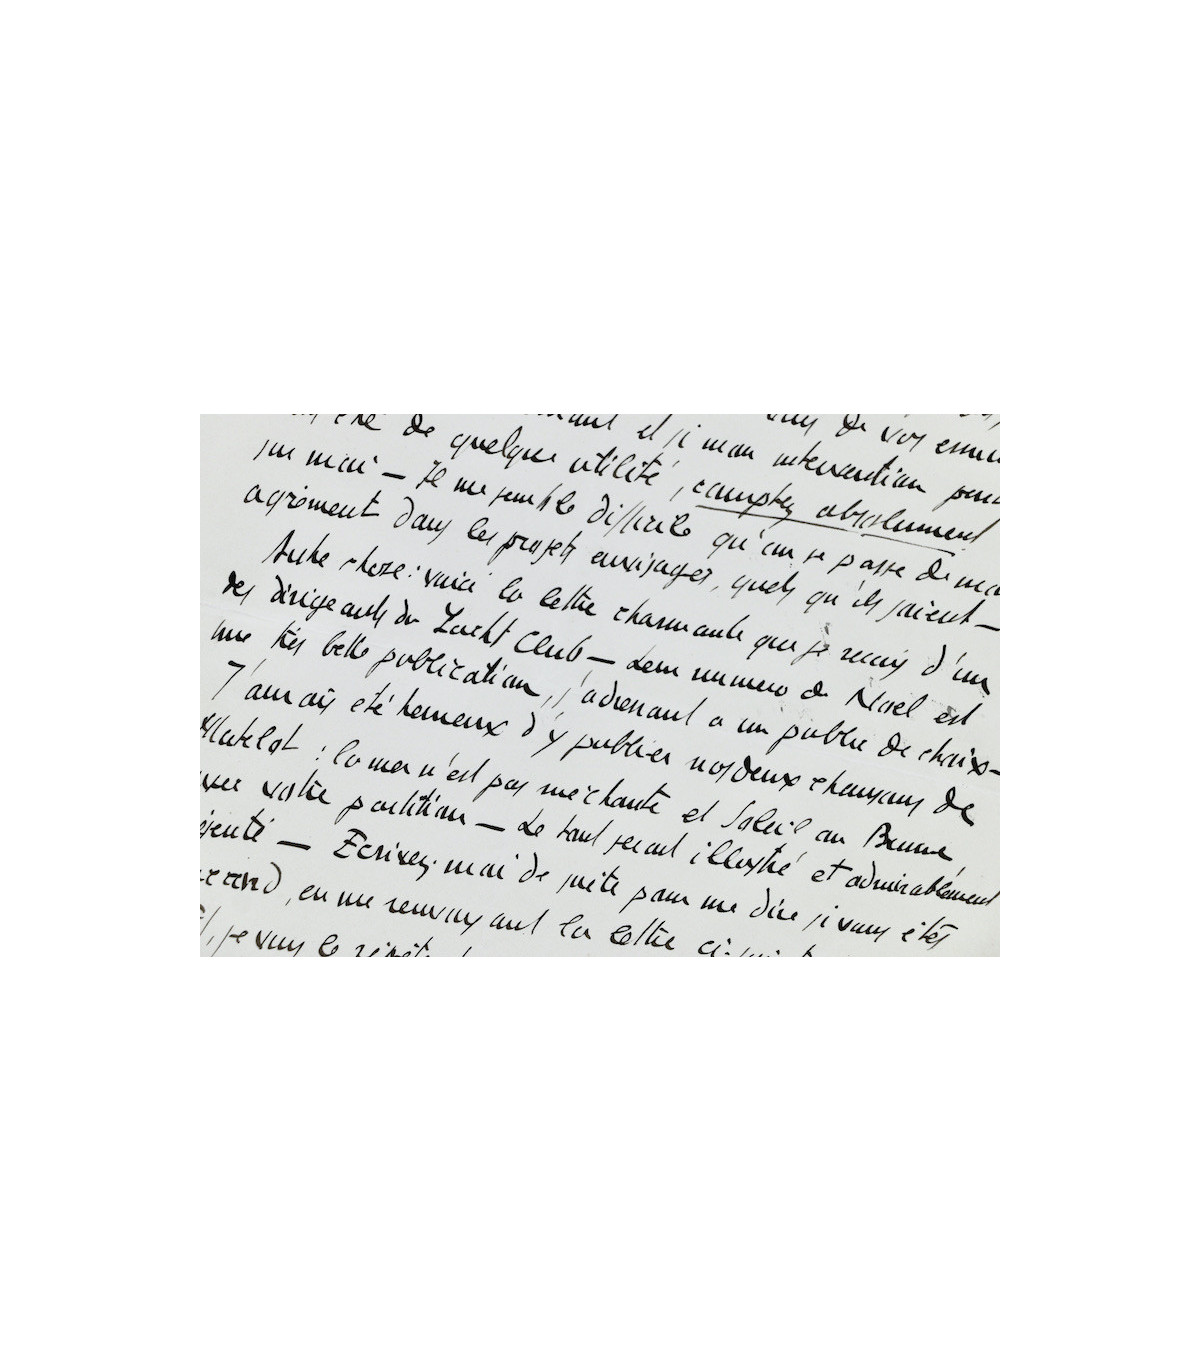 de vos ennuis
et si mon intervention peut
être de quelque utilité, comptez absolument
sur moi — Il me semble difficile qu'on se passe de mon
agrément dans les projets envisagés, quels qu'ils soient —
Autre chose : voici la lettre charmante que je reçois d'un
des dirigeants du Yacht Club — Leur numero de Noël est
une très belle publication, s'adressant a un public de choix —
J'aurais été heureux d'y publier nos deux chansons de
Matelot : la mer n'est pas méchante et Soleil au
votre partition — Le tout serait illustré et admirablement
Ecrivez-moi de suite pour me dire si vous êtes
en me renvoyant la lettre ci-
je vous le